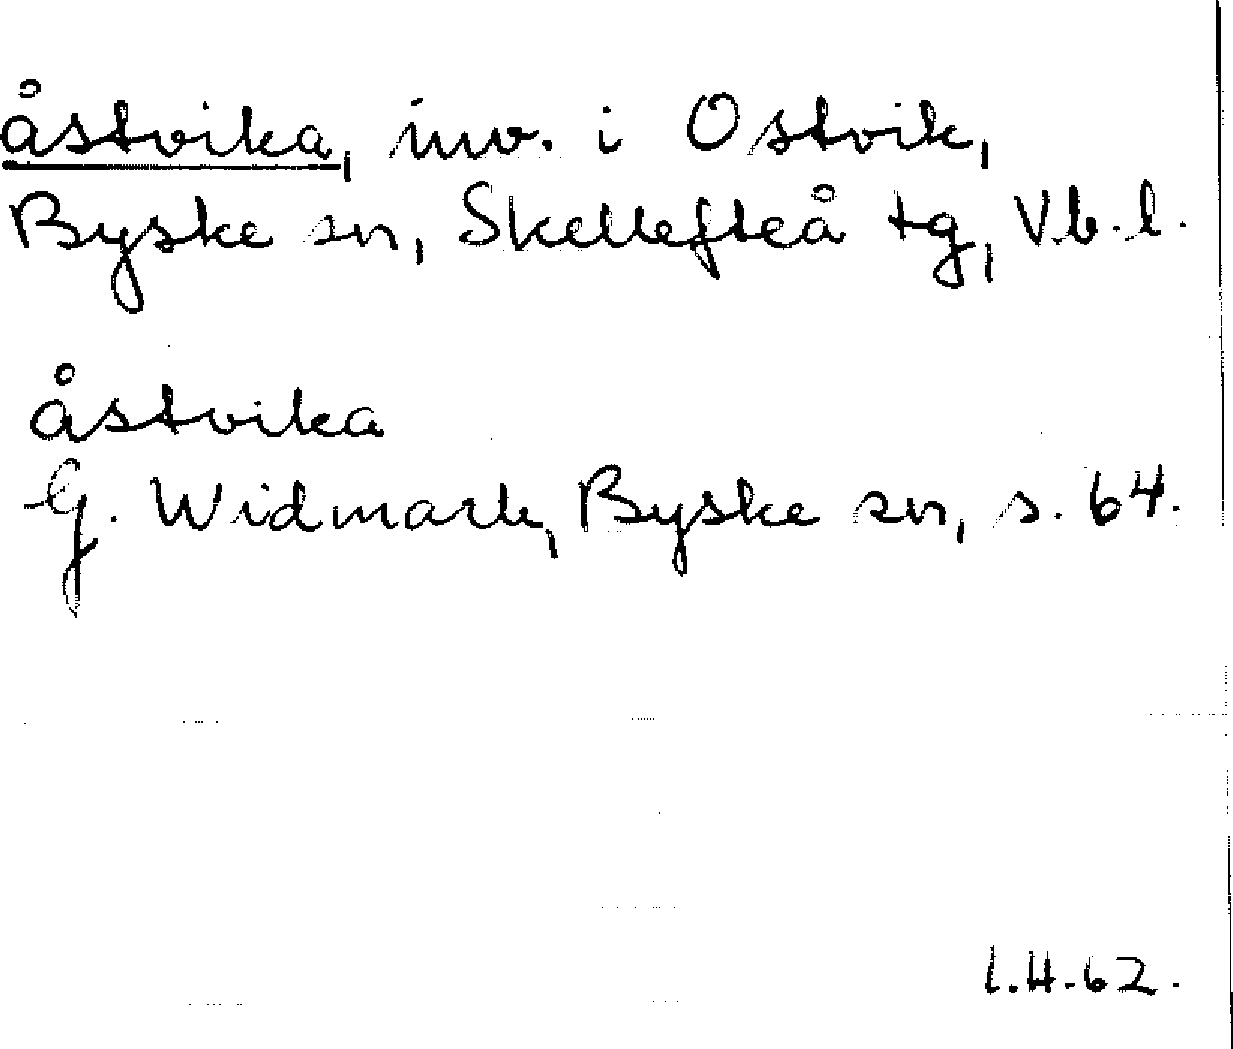 åstvika, inv. i Ostvik,
Byske sn, Skellefteå tg, Vb. l.
åstvika
G. Widmark, Byske sn, s. 64.
I.H.62.